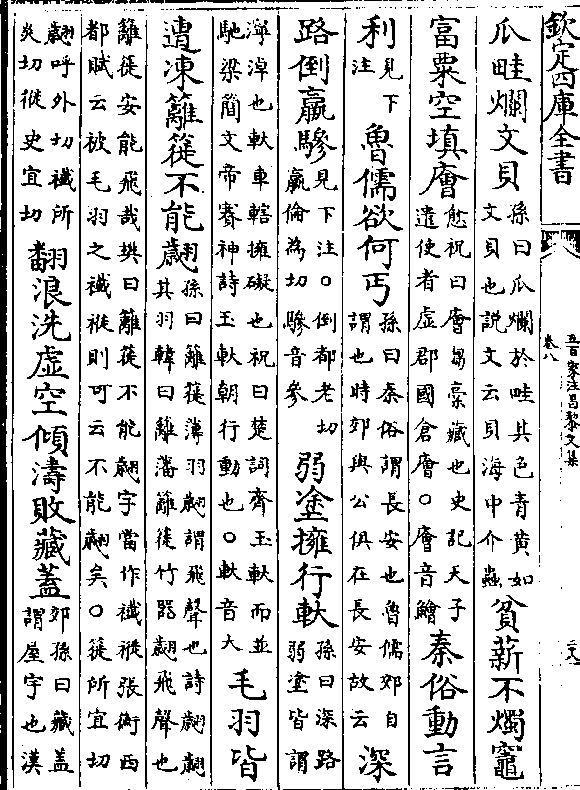 欽定四庫全書
五百家注昌黎文集
卷八
瓜畦爛文貝孫曰瓜爛於畦其色青黄如文貝也説文云貝海中介蟲貧薪不燭竈
富粟空填廥愈祝曰廥芻稾藏也史記天子遣使者虛郡國倉廥○廥音鱠秦俗動言
利見下注魯儒欲何丐孫曰秦俗謂長安也魯儒郊自謂也時郊與公俱在長安故云深
路倒羸驂見下注○倒都老切羸倫為切驂音參弱塗擁行軑孫曰深路弱塗皆謂
濘淖也軑車轄擁礙也祝曰楚詞齊玉軑而並馳梁簡文帝賽神詩玉軑朝行動也○軑音大毛羽皆
遭凍離簁不能翽孫曰離簁薄羽翽謂飛聲也詩翽翽其羽韓曰離藩籬簁竹器翽飛聲也
離簁安能飛哉樊曰離簁不能翽字當作襳褷張衡西都賦云被毛羽之襳褷則可云不能翽矣○簁所宜切
翽呼外切襳所炎切褷史宜切翻浪洗虛空傾濤敗藏蓋郊孫曰藏蓋謂屋宇也漢